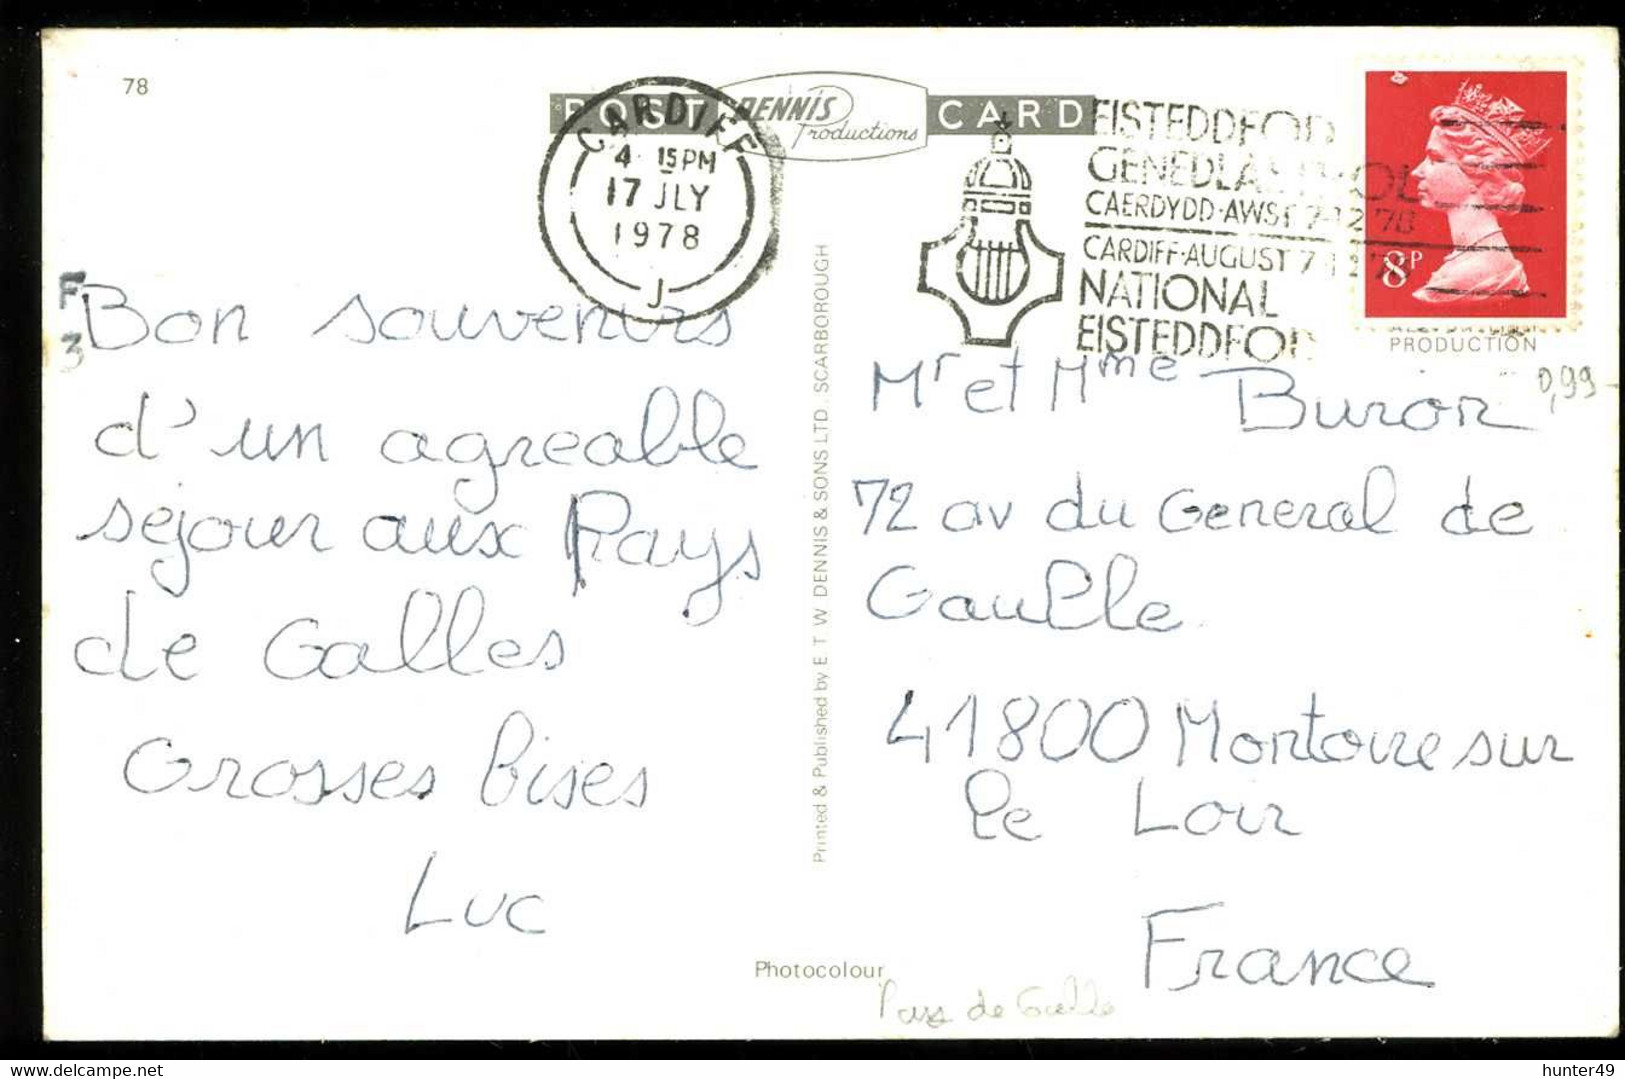 78
POST DENNIS Productions CARD
CARDIFF
4 15 PM
17 JLY
1978
J
EISTEDDFOD
GENEDLAETHOL
CAERDYDD·AWST 7-12 '78
CARDIFF·AUGUST 7-12 '78
NATIONAL
EISTEDDFOD
8P
PRODUCTION
0,99
F
3
Bon souvenirs
d'un agreable
sejour aux Pays
de Galles
Grosses bises
Luc
Printed & Published by E T W DENNIS & SONS LTD. SCARBOROUGH
Mr et Mme Buron
72 av du General de
Gaulle
41800 Montoire sur
le Loir
France
Photocolour
Pays de Galle
hunter49